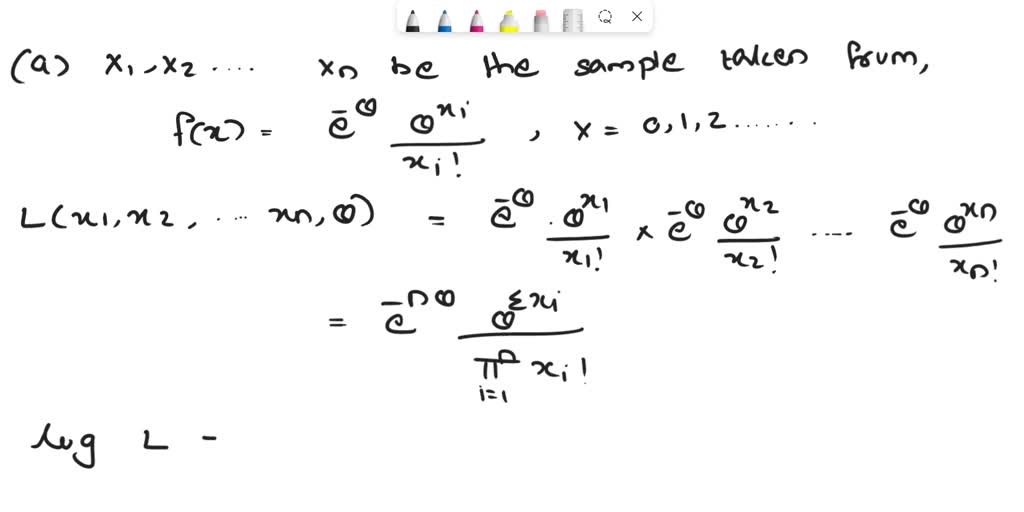 (a) x₁, x₂ .... xₙ be the sample taken from,
f(x) = e^{-θ} θ^{xᵢ} / xᵢ! , x = 0, 1, 2 .......
L(x₁, x₂, .... xₙ, θ) = e^{-θ} . θ^{x₁} / x₁! × e^{-θ} θ^{x₂} / x₂! ..... e^{-θ} θ^{xₙ} / xₙ!
= e^{-nθ} θ^{Σxᵢ} / π^{n}_{i=1} xᵢ!
log L -